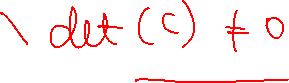 \ det (c) ≠ 0